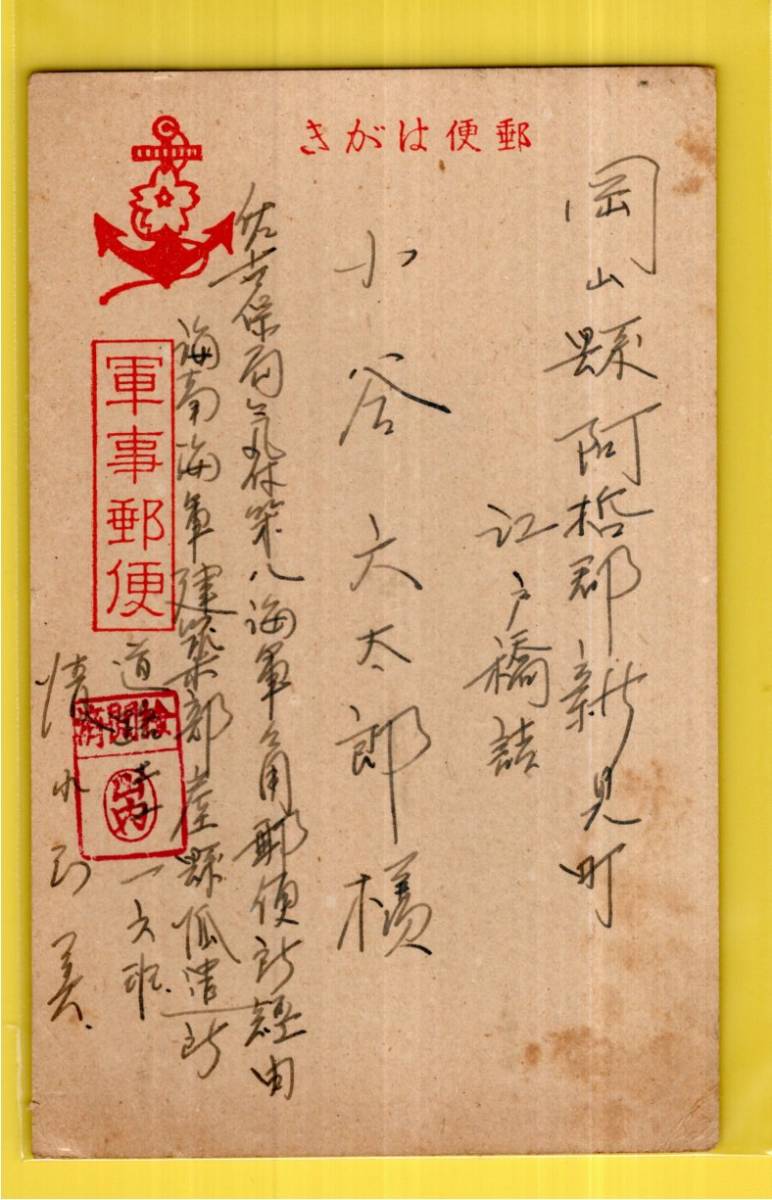 郵便はがき
岡山縣阿哲郡新見町
江戸橋詰
小谷六太郎様
佐世保局気付第八海軍軍用郵便所経由
海南海軍建築部崖縣派遣所
道路 一六班
清水 美
軍事郵便
検閲済
山内